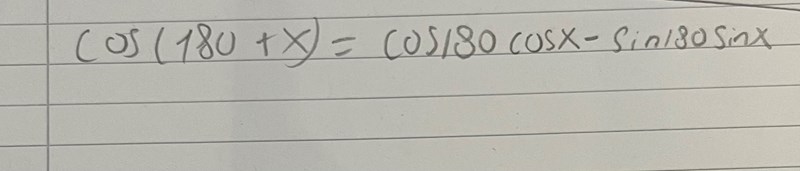 cos(180+x) = cos180 cosx - sin180 sinx